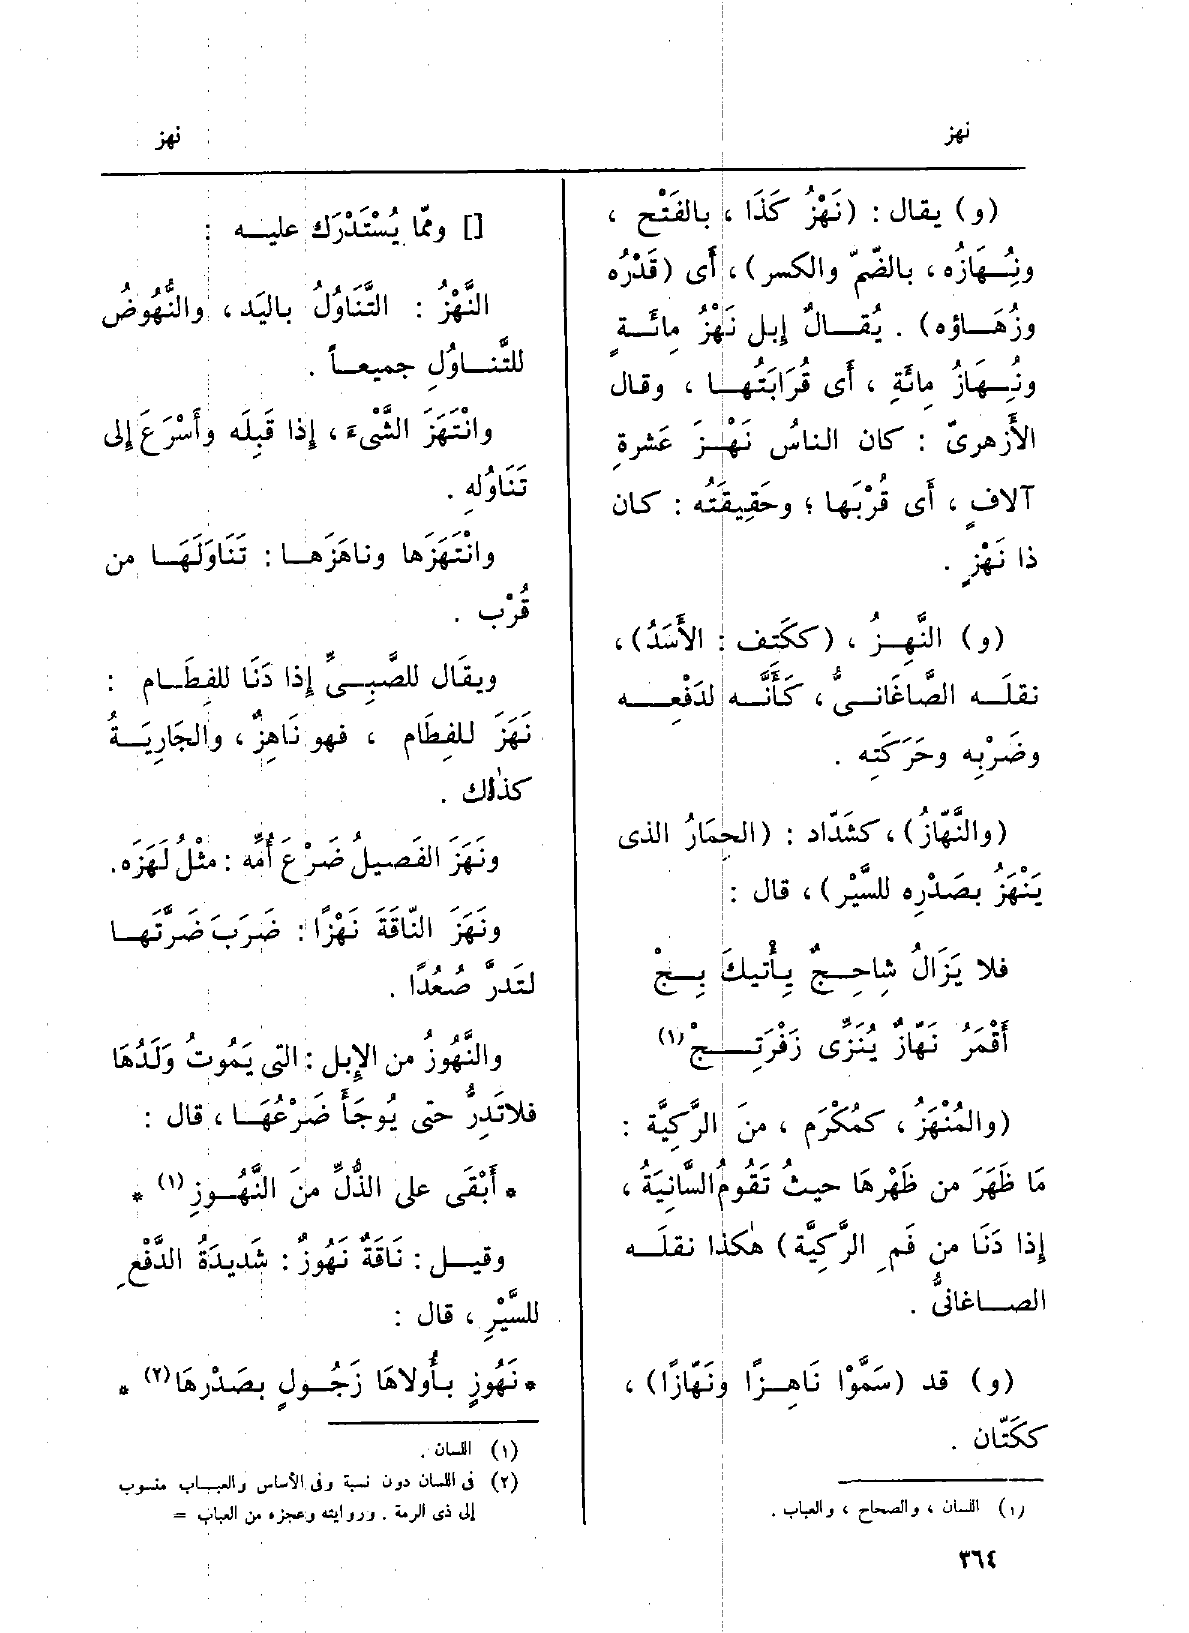 نهز
نهز
(و) يقال : (نَهْزُ كَذَا ، بالفَتْح ،
ونُِهَازُه ، بالضّمّ والكسر) ، أَى (قَدْرُه
وزُهَاؤه) . يُقالُ إبل نَهْزُ مِائَةٍ
ونُِهَازُ مِائَةٍ ، أَى قُرَابَتُها ، وقال
الأَزهرىّ : كان الناسُ نَهْزَ عَشرةِ
آلافٍ ، أَى قُرْبَها ؛ وحَقِيقَتُه : كان
ذا نَهْزٍ .
(و) النَّهِزُ ، (ككَتِف : الأَسَدُ) ،
نقلَه الصَّاغَانىُّ ، كَأَنَّه لدَفْعِه
وضَرْبِه وحَرَكَتِه .
(والنَّهّازُ) ، كشَدّاد : (الحِمَارُ الذى
يَنْهَزُ بصَدْرِه للسَّيْر) ، قال :
فلا يَزَالُ شاحِجٌ يأْتيكَ بِجْ
أَقْمَرُ نَهّازٌ يُنَزِّى زَفْرَتِجْ (١)
(والمُنْهَزُ ، كمُكْرَم ، منَ الرَّكيَّة :
مَا ظَهَرَ من ظَهْرهَا حيثُ تَقُومُ السَّانِيَةُ ،
إذا دَنَا من فَمِ الرَّكِيَّة) هٰكذا نقلَه
الصاغانىُّ .
(و) قد (سَمَّوْا نَاهِزًا ونَهّازًا) ،
ككَتّان .
(١) اللسان ، والصحاح ، والعباب .
[] وممّا يُسْتَدْرَك عليه :
النَّهْزُ : التَّنَاوُلُ باليَد ، والنُّهُوضُ
للتَّناوُلِ جميعاً .
وانْتَهَزَ الشَّىْءَ ، إذا قَبِلَه وأَسْرَعَ إلى
تَنَاوُلِه .
وانْتَهَزَها ونَاهَزَها : تَنَاوَلَهَا من
قُرْب .
ويقَال للصَّبِىِّ إذا دَنَا للفِطَام :
نَهَزَ للفِطَام ، فهو نَاهِزٌ ، والجَارِيَةُ
كذٰلك .
ونَهَزَ الفَصيلُ ضَرْعَ أُمِّه : مثْلُ لَهَزَه .
ونَهَزَ النّاقَةَ نَهْزًا : ضَرَبَ ضَرَّتَها
لتَدرَّ صُعُدًا .
والنَّهُوزُ من الإبل : التى يَمُوتُ وَلَدُهَا
فلاتَدِرُّ حتى يُوجَأَ ضَرْعُهَا ، قال :
* أَبْقَى على الذُّلِّ منَ النَّهُوزِ (١) *
وقيل : نَاقَةٌ نَهُوزٌ : شَديدَةُ الدَّفْعِ
للسَّيْرِ ، قال :
* نَهُوزٍ بأُولاهَا زَجُولٍ بصَدْرهَا (٢) *
(١) اللسان .
(٢) فى اللسان دون نسبة وفى الأساس والعباب منسوب
إلى ذى الرمة . وروايته وعجزه من العباب =
٣٦٤